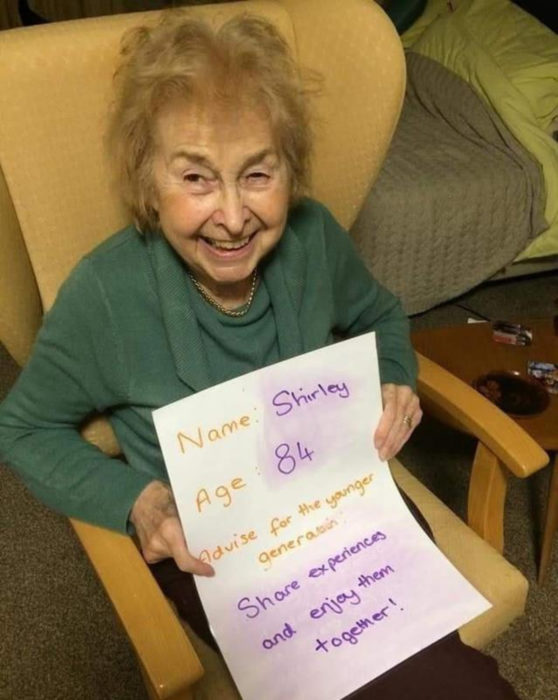 Name: Shirley
Age: 84
Advise for the younger
generation:
Share experiences
and enjoy them
together!